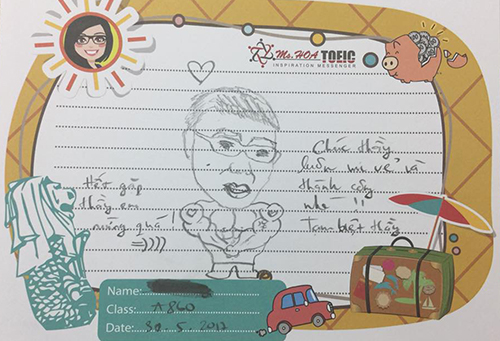 Ms. HOA TOEIC
INSPIRATION MESSENGER
Hết gặp
thầy em
mừng quá!
=))))
Chúc thầy
luôn vui vẻ và
thành công
nhé !!
Tạm biệt thầy
Name:
Class: A860
Date: